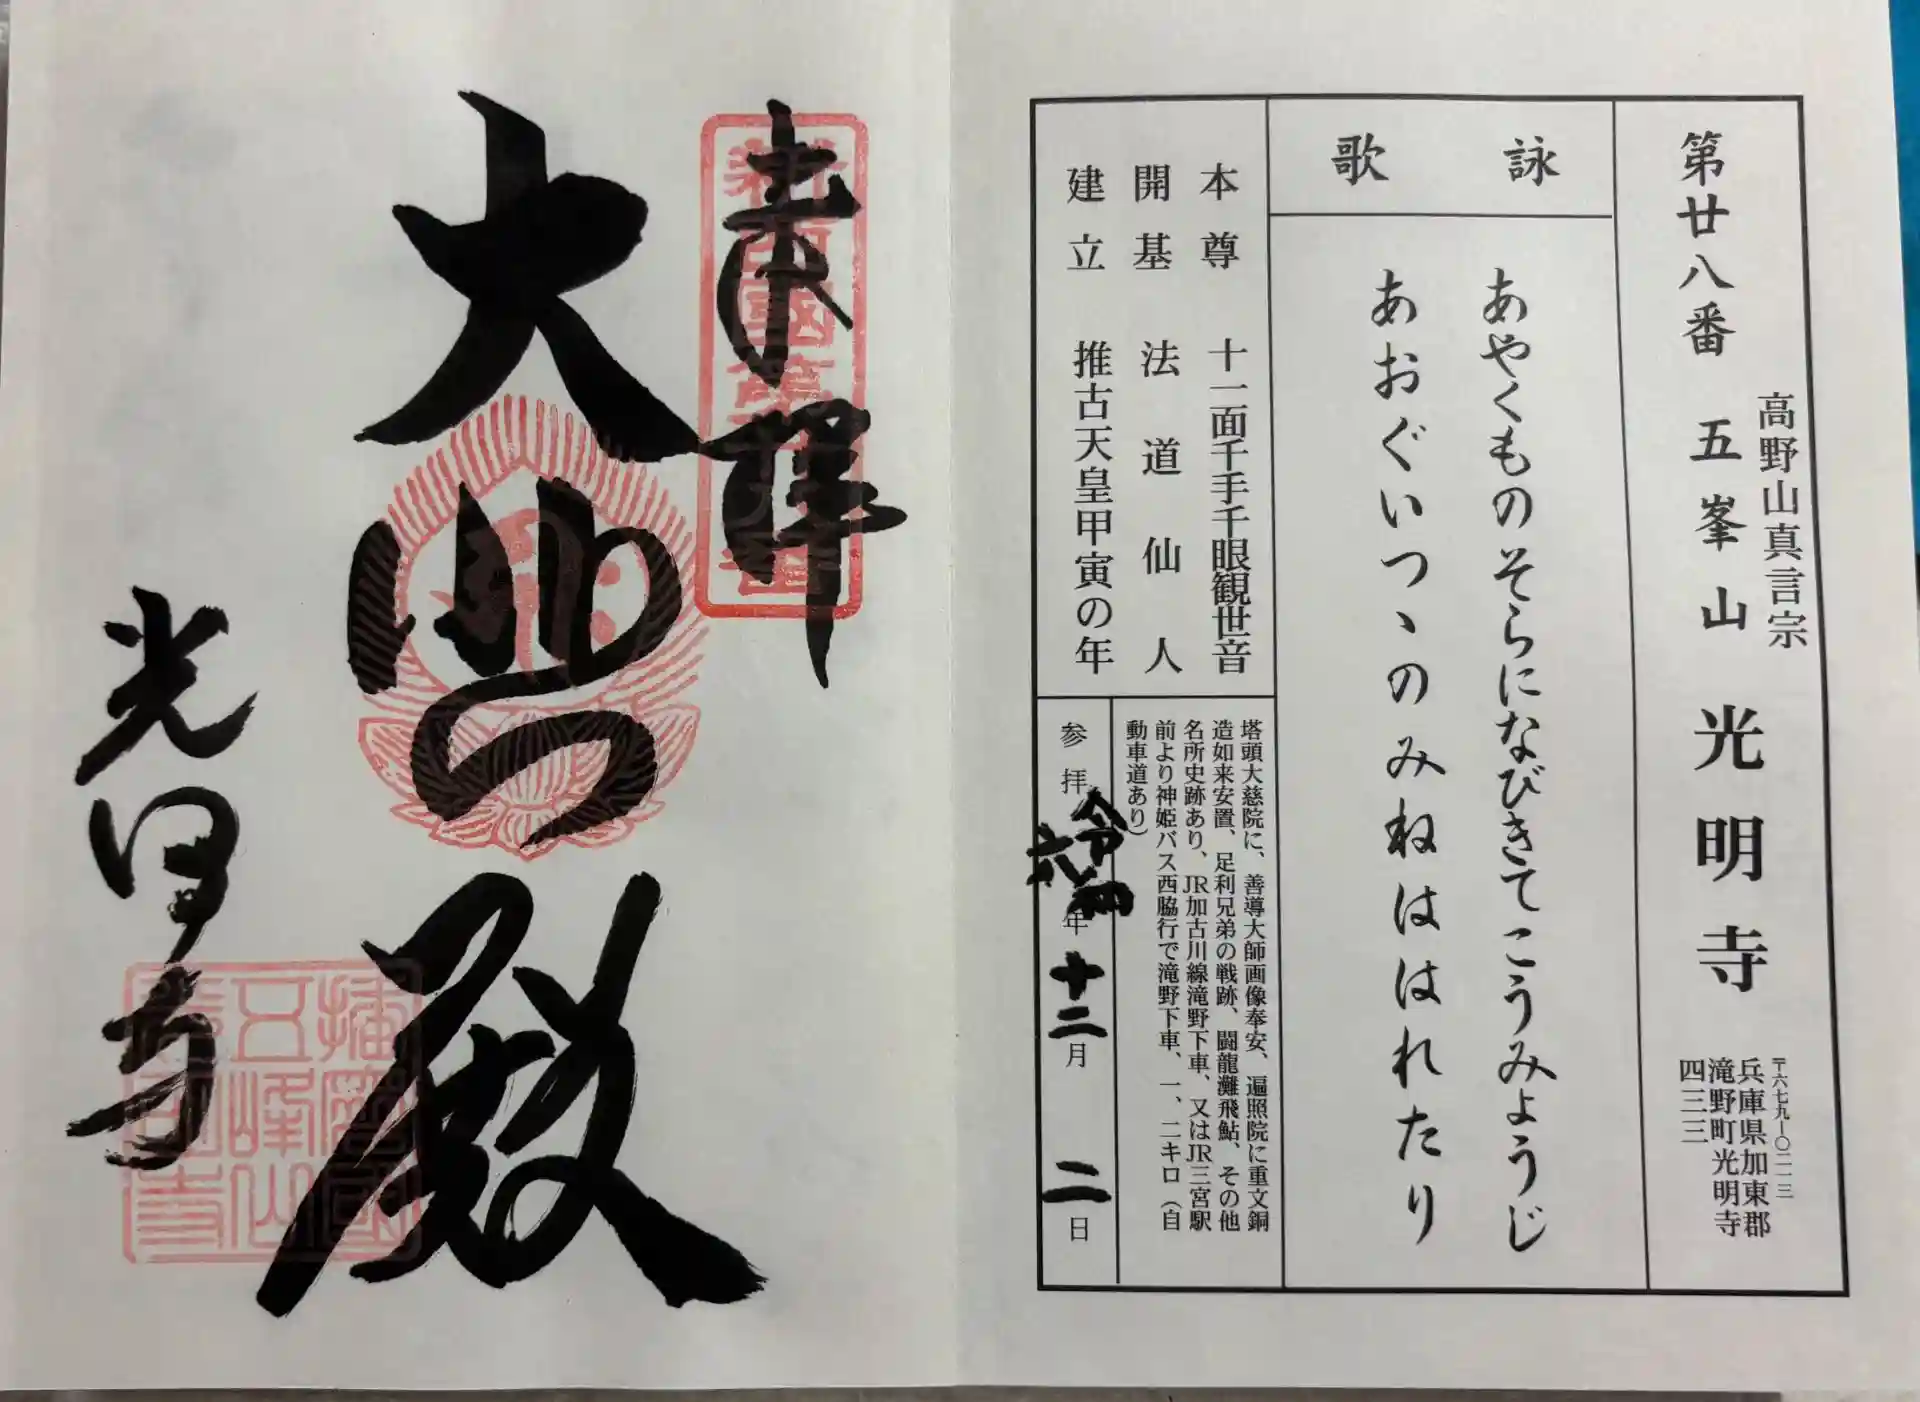 第廿八番 五峯山 光明寺
高野山真言宗
〒六七九―〇二一三
兵庫県加東郡
滝野町光明寺
四三三
詠歌
あやくものそらになびきてこうみょうじ
あおぐいつヽのみねははれたり
本尊 十一面千手千眼観世音
開基 法道仙人
建立 推古天皇甲寅の年
塔頭大慈院に、善導大師画像奉安、遍照院に重文銅
造如来安置、足利兄弟の戦跡、闘龍灘飛鮎、その他
名所史跡あり、JR加古川線滝野下車、又はJR三宮駅
前より神姫バス西脇行で滝野下車、一、二キロ（自
動車道あり）
参拝 令和六年 十二月 二日
奉拝
新西國第廿八番
大悲殿
光明寺
播磨國
五峰山
光明寺